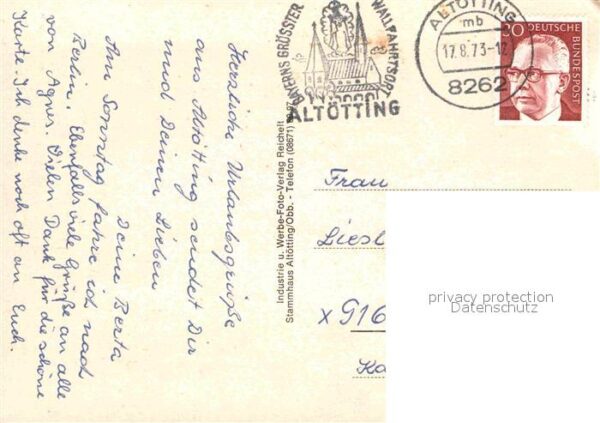 Herzliche Urlaubsgrüße
aus Altötting sendet Dir
und Deinen Lieben
Deine Berta
Am Sonntag fahre ich nach
Berlin. Ebenfalls viele Grüße an alle
von Agnes. Vielen Dank für die schöne
Karte. Ich denke noch oft an Euch.
Industrie u. Werbe-Foto-Verlag Reichelt
Stammhaus Altötting/Obb. - Telefon (08671)
BAYERNS GRÖSSTER
WALLFAHRTSORT
ALTÖTTING
ALTÖTTING
mb
17.8.73-12
8262
20
DEUTSCHE
BUNDESPOST
Frau
Liesl
x 916
privacy protection
Datenschutz